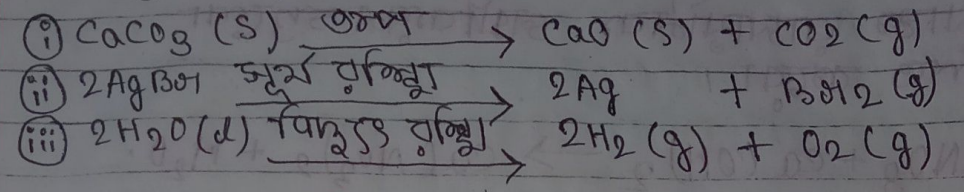 (i) CaCO3 (s) তাপ → CaO (s) + CO2 (g)
(ii) 2AgBr সূর্য ৰশ্মি → 2Ag + Br2 (g)
(iii) 2H2O (l) বিদ্যুৎ ৰশ্মি → 2H2 (g) + O2 (g)